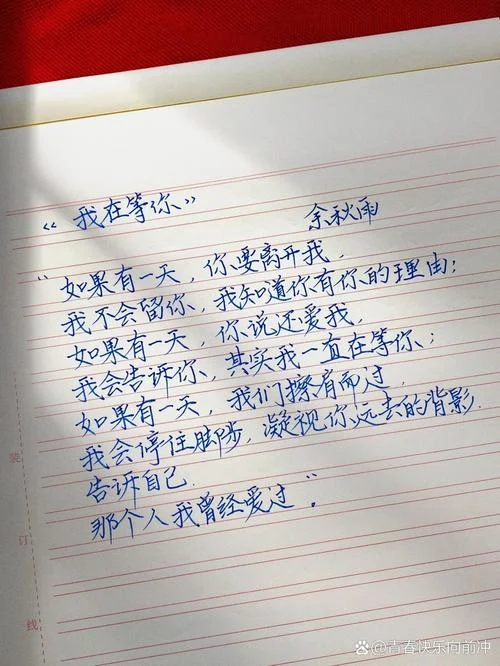 《我在等你》
余秋雨
"如果有一天，你要离开我，
我不会留你，我知道你有你的理由；
如果有一天，你说还爱我，
我会告诉你，其实我一直在等你；
如果有一天，我们擦肩而过，
我会停住脚步，凝视你远去的背影，
告诉自己，
那个人我曾经爱过"。
装
订
线
@青春快乐向前冲